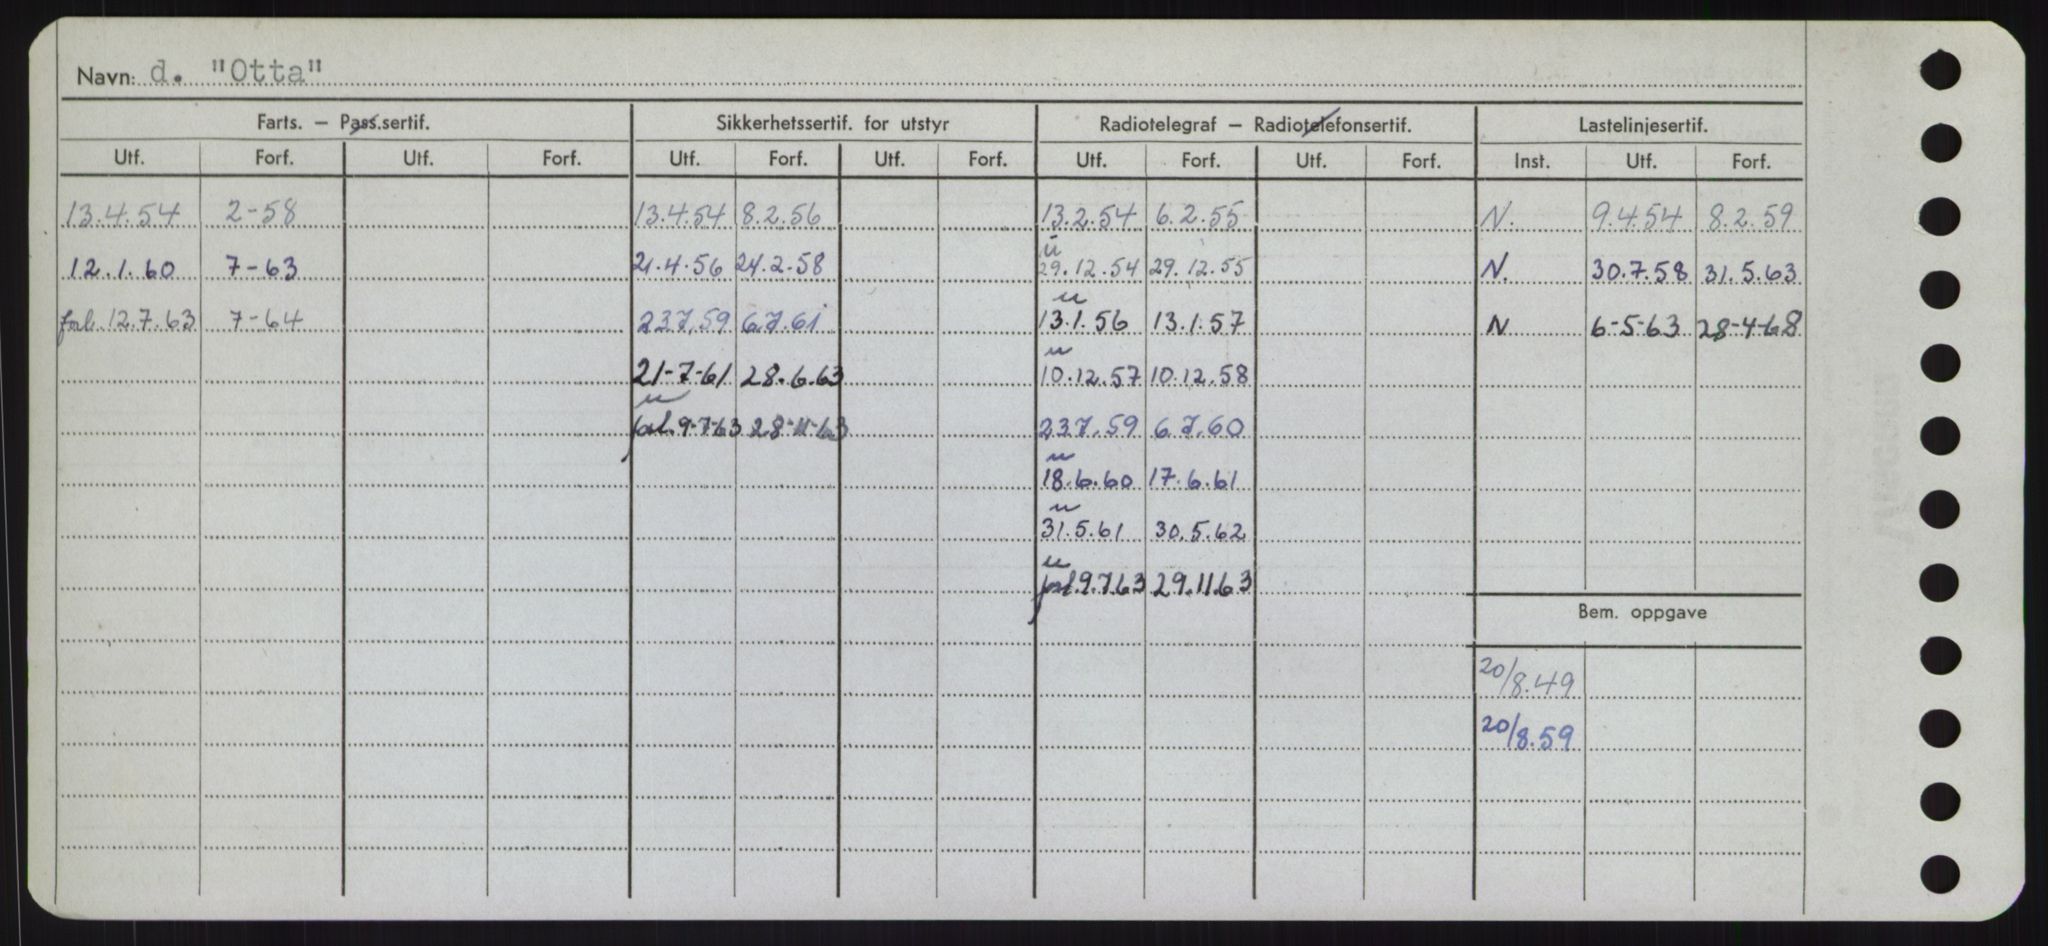 Navn: d. "Otta"
Farts. — Pass.sertif. Sikkerhetssertif. for utstyr Radiotelegraf — Radiotelefonsertif. Lastelinjesertif.
Utf. Forf. Utf. Forf. Utf. Forf. Utf. Forf. Utf. Forf. Utf. Forf. Inst. Utf. Forf.
13.4.54 2-58 13.4.54 8.2.56 13.2.54 6.2.55 N. 9.4.54 8.2.59
u
12.1.60 7-63 21.4.56 24.2.58 29.12.54 29.12.55 N. 30.7.58 31.5.63
u
forl. 12.7.63 7-64 23.7.59 6.7.61 13.1.56 13.1.57 N 6-5-63 28-4-68
u
21-7-61 28.6.63 10.12.57 10.12.58
u
forl. 9-7-63 28-11-63 23.7.59 6.7.60
u
18.6.60 17.6.61
u
31.5.61 30.5.62
u
forl. 9.7.63 29.11.63
Bem. oppgave
20/8.49
20/8.59